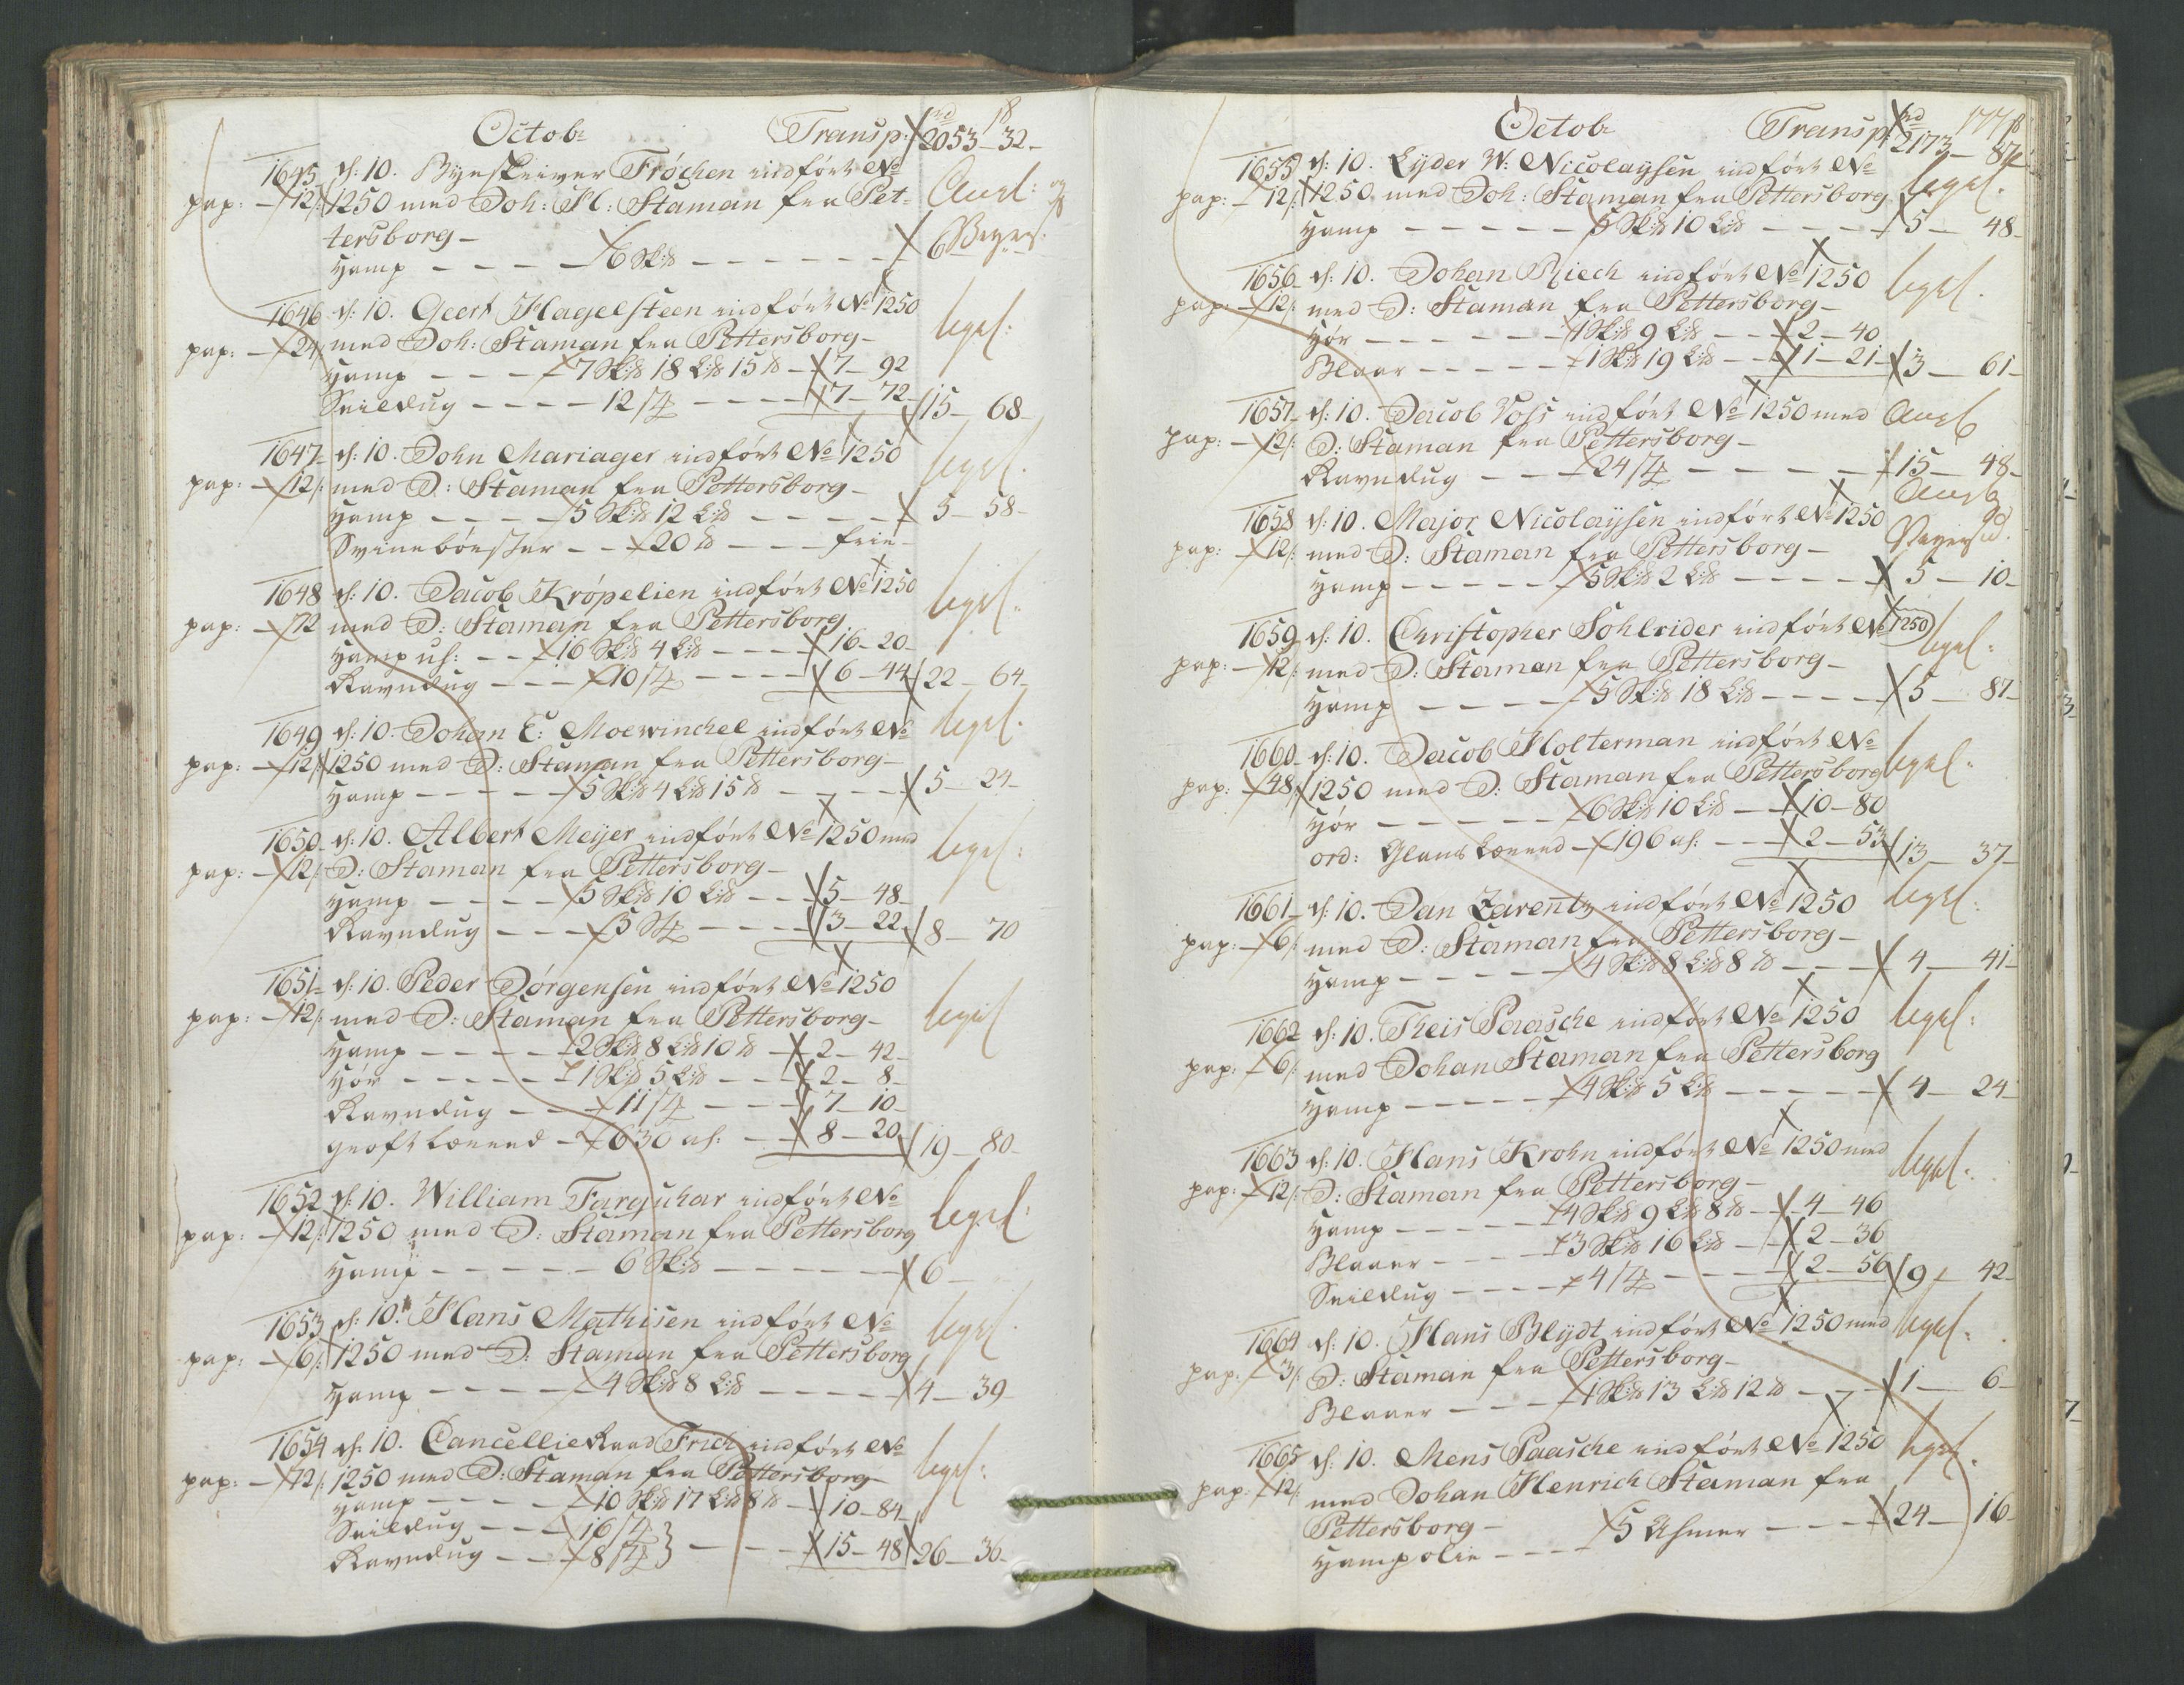 Octob: Transp: 2053 - 32 -
1645 d: 10. Byeskriver Fröchen indfört No
pap: - 12/: 1250 med Joh: H: Staman fra Pet=
tersborg -
Hamp - - - - 6 Sk:lb - - - - - - 6
1646 d: 10. Geert Hagelsteen indfört No 1250 legel:
pap: - 24/: med Joh: Staman fra Pettersborg -
Hamp - - - - 7 Sk:lb 18 L:lb 15 lb - 7 - 92
Seildug - - - - 12/4 - - - - 7 - 72 - 15 - 68 -
1647 - d: 10. John Mariager indfört No 1250 legel:
pap: - 12/: med J: Staman fra Pettersborg -
Hamp - - - - 5 Sk:lb 12 L:lb - - - - 5 - 58 -
Svinebörster - - 20 lb - - - frie -
1648 d: 10. Jacob Kröpelien indfört No 1250 legel:
pap: - 12 med J: Staman fra Pettersborg
Hamp - - 16 Sk:lb 4 L:lb - - - - 16 - 20 -
Ravndug - - - 10/4 - - - - 6 - 44 22 - 64 -
1649 d: 10. Johan E: Moewinckel indfört No legel:
pap: - 12/: 1250 med J: Staman fra Pettersborg -
Hamp - - - - - 5 Sk:lb 4 L:lb 15 lb - - - - 5 - 24 -
1650 - d: 10. Albert Meijer indfört No 1250 med legel:
pap: - 12/: J: Staman fra Pettersborg -
Hamp - - - - - 5 Sk:lb 10 L:lb - - - 5 - 48 -
Ravndug - - - 5 St - - - - 3 - 22 8 - 70
1651 - d: 10. Peder Jörgensen indfört No 1250 legel
pap: - 12/: med J: Staman fra Pettersborg -
Hamp - - - - - 2 Sk:lb 8 L:lb 10 lb - 2 - 42 -
Hör - - - - - - 1 Sk:lb 5 L:lb - - - 2 - 8 -
Ravndug - - - 11/4 - - - - 7 - 10 -
groft Lærred - 630 al: - - 8 - 20 19 - 80 -
1652 d: 10. William Farquhar indfört No legel:
pap: - 12/: 1250 med J: Staman fra Pettersborg
Hamp - - - - - 6 Sk:lb - - - - - - 6 -
1653 d: 10. Hans Mathisen indfört No legel:
pap: - 6/: 1250 med J: Staman fra Pettersborg
Hamp - - - - - 4 Sk:lb 8 L:lb - - - - - 4 - 39 -
1654 d: 10. CancellieRaad Frich indfört No legel:
pap: - 12/: 1250 med J: Staman fra Pettersborg
Hamp - - - - - 10 Sk:lb 17 L:lb 8 lb - 10 - 84 -
Seildug - - - 16/4 }
Ravndug - - - 8/4 } - - - - 15 - 48 26 - 36 -
Octob: Transp: 2173 - 87
1655 d: 10. Lyder W: Nicolaysen indfört No legel:
pap: - 12/: 1250 med Joh: Staman fra Pettersborg
Hamp - - - - - 5 Sk:lb 10 L:lb - - - - 5 - 48 -
1656 - d: 10. Johan Riech indfört No 1250 legel:
pap: - 12/: med J: Staman fra Pettersborg -
Hör - - - - - - 1 Sk:lb 9 L:lb - - 2 - 40
Blaar - - - - - 1 Sk:lb 19 L:lb - - 1 - 21 - 3 - 61 -
1657 - d: 10. Jacob Voss indfört No 1250 med
pap: - 12/: J: Staman fra Pettersborg -
Ravndug - - - 24/4 - - - - - - 15 - 48 -
1658 d: 10. Major Nicolaysen indfört No 1250
pap: - 12/: med J: Staman fra Pettersborg -
Hamp - - - - - - 5 Sk:lb 2 L:lb - - - - - 5 - 10 -
1659 - d: 10. Christopher Sohlrider indfört No 1250 legel:
pap: - 12/: med J: Staman fra Pettersborg -
Hamp - - - - - - 5 Sk:lb 18 L:lb - - - - 5 - 87 -
1660 - d: 10. Jacob Holterman indfört No legel:
pap: - 48/: 1250 med J: Staman fra Pettersborg
Hör - - - - - - 6 Sk:lb 10 L:lb - - 10 - 80
ord: Glands Lærred - 196 al: - - - 2 - 53 13 - 37 -
1661 - d: 10. Dan Zarentz indfört No 1250 legel:
pap: - 6/: med J: Staman fra Pettersborg -
Hamp - - - - - - 4 Sk:lb 8 L:lb 8 lb - - - 4 - 41 -
1662 d: 10. Theis Paasche indfört No 1250 legel:
pap: - 6/: med Johan Staman fra Pettersborg
Hamp - - - - - 4 Sk:lb 5 L:lb - - - - - 4 - 24 -
1663 d: 10. Hans Krohn indfört No 1250 med legel:
pap: - 12/: J: Staman fra Pettersborg -
Hamp - - - - - 4 Sk:lb 9 L:lb 8 lb - 4 - 46
Blaaer - - - - 3 Sk:lb 16 L:lb - - 2 - 36
Seildug - - - - 4/4 - - - - 2 - 56 9 - 42 -
1664 d: 10. Hans Blijdt indfört No 1250 med legel:
pap: - 3/: J: Staman fra Pettersborg -
Blaaer - - - - 1 Sk:lb 13 L:lb 12 lb - - - 1 - 6 -
1665 d: 10. Mens Paasche indfört No 1250 legel:
pap: - 12/: med Johan Henrich Staman fra
Pettersborg -
Hampolie - - - 5 Ahmer - - - 24 - 16 -